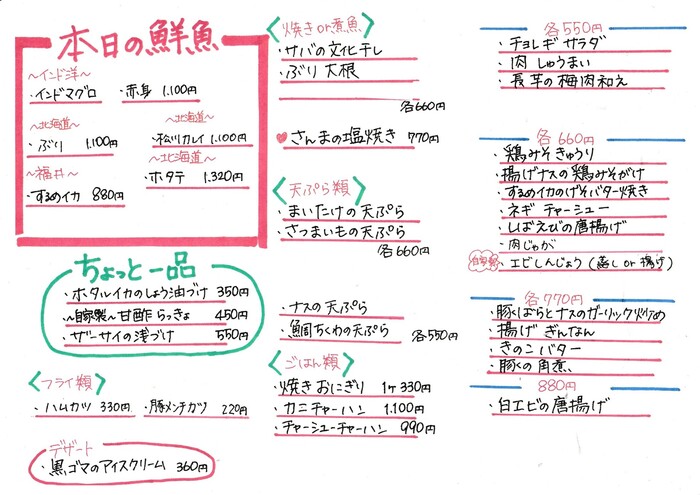 本日の鮮魚
～インド洋～
・インドマグロ ・赤身 1.100円
～北海道～
・ぶり 1.100円
～北海道～
・松川カレイ 1.100円
～福井～
・するめイカ 880円
～北海道～
・ホタテ 1.320円
ちょっと一品
・ホタルイカのしょう油づけ 350円
・～自家製～甘酢らっきょ 450円
・ザーサイの浅づけ 550円
〈フライ類〉
・ハムカツ 330円 ・豚メンチカツ 220円
デザート
・黒ゴマのアイスクリーム 360円
〈焼きor煮魚〉
・サバの文化干し
・ぶり大根
各660円
さんまの塩焼き 770円
〈天ぷら類〉
・まいたけの天ぷら
・さつまいもの天ぷら
各660円
・ナスの天ぷら
・鯛ちくわの天ぷら 各550円
〈ごはん類〉
・焼きおにぎり 1ケ330円
・カニチャーハン 1.100円
・チャーシューチャーハン 990円
各550円
・チョレギサラダ
・肉しゅうまい
・長芋の梅肉和え
各660円
・鶏みそきゅうり
・揚げナスの鶏みそがけ
・するめイカのげそバター焼き
・ネギチャーシュー
・しばえびの唐揚げ
・肉じゃが
自家製 ・エビしんじょう(蒸しor揚げ)
各770円
・豚ばらとナスのガーリック炒め
・揚げぎんなん
・きのこバター
・豚の角煮
880円
・白エビの唐揚げ